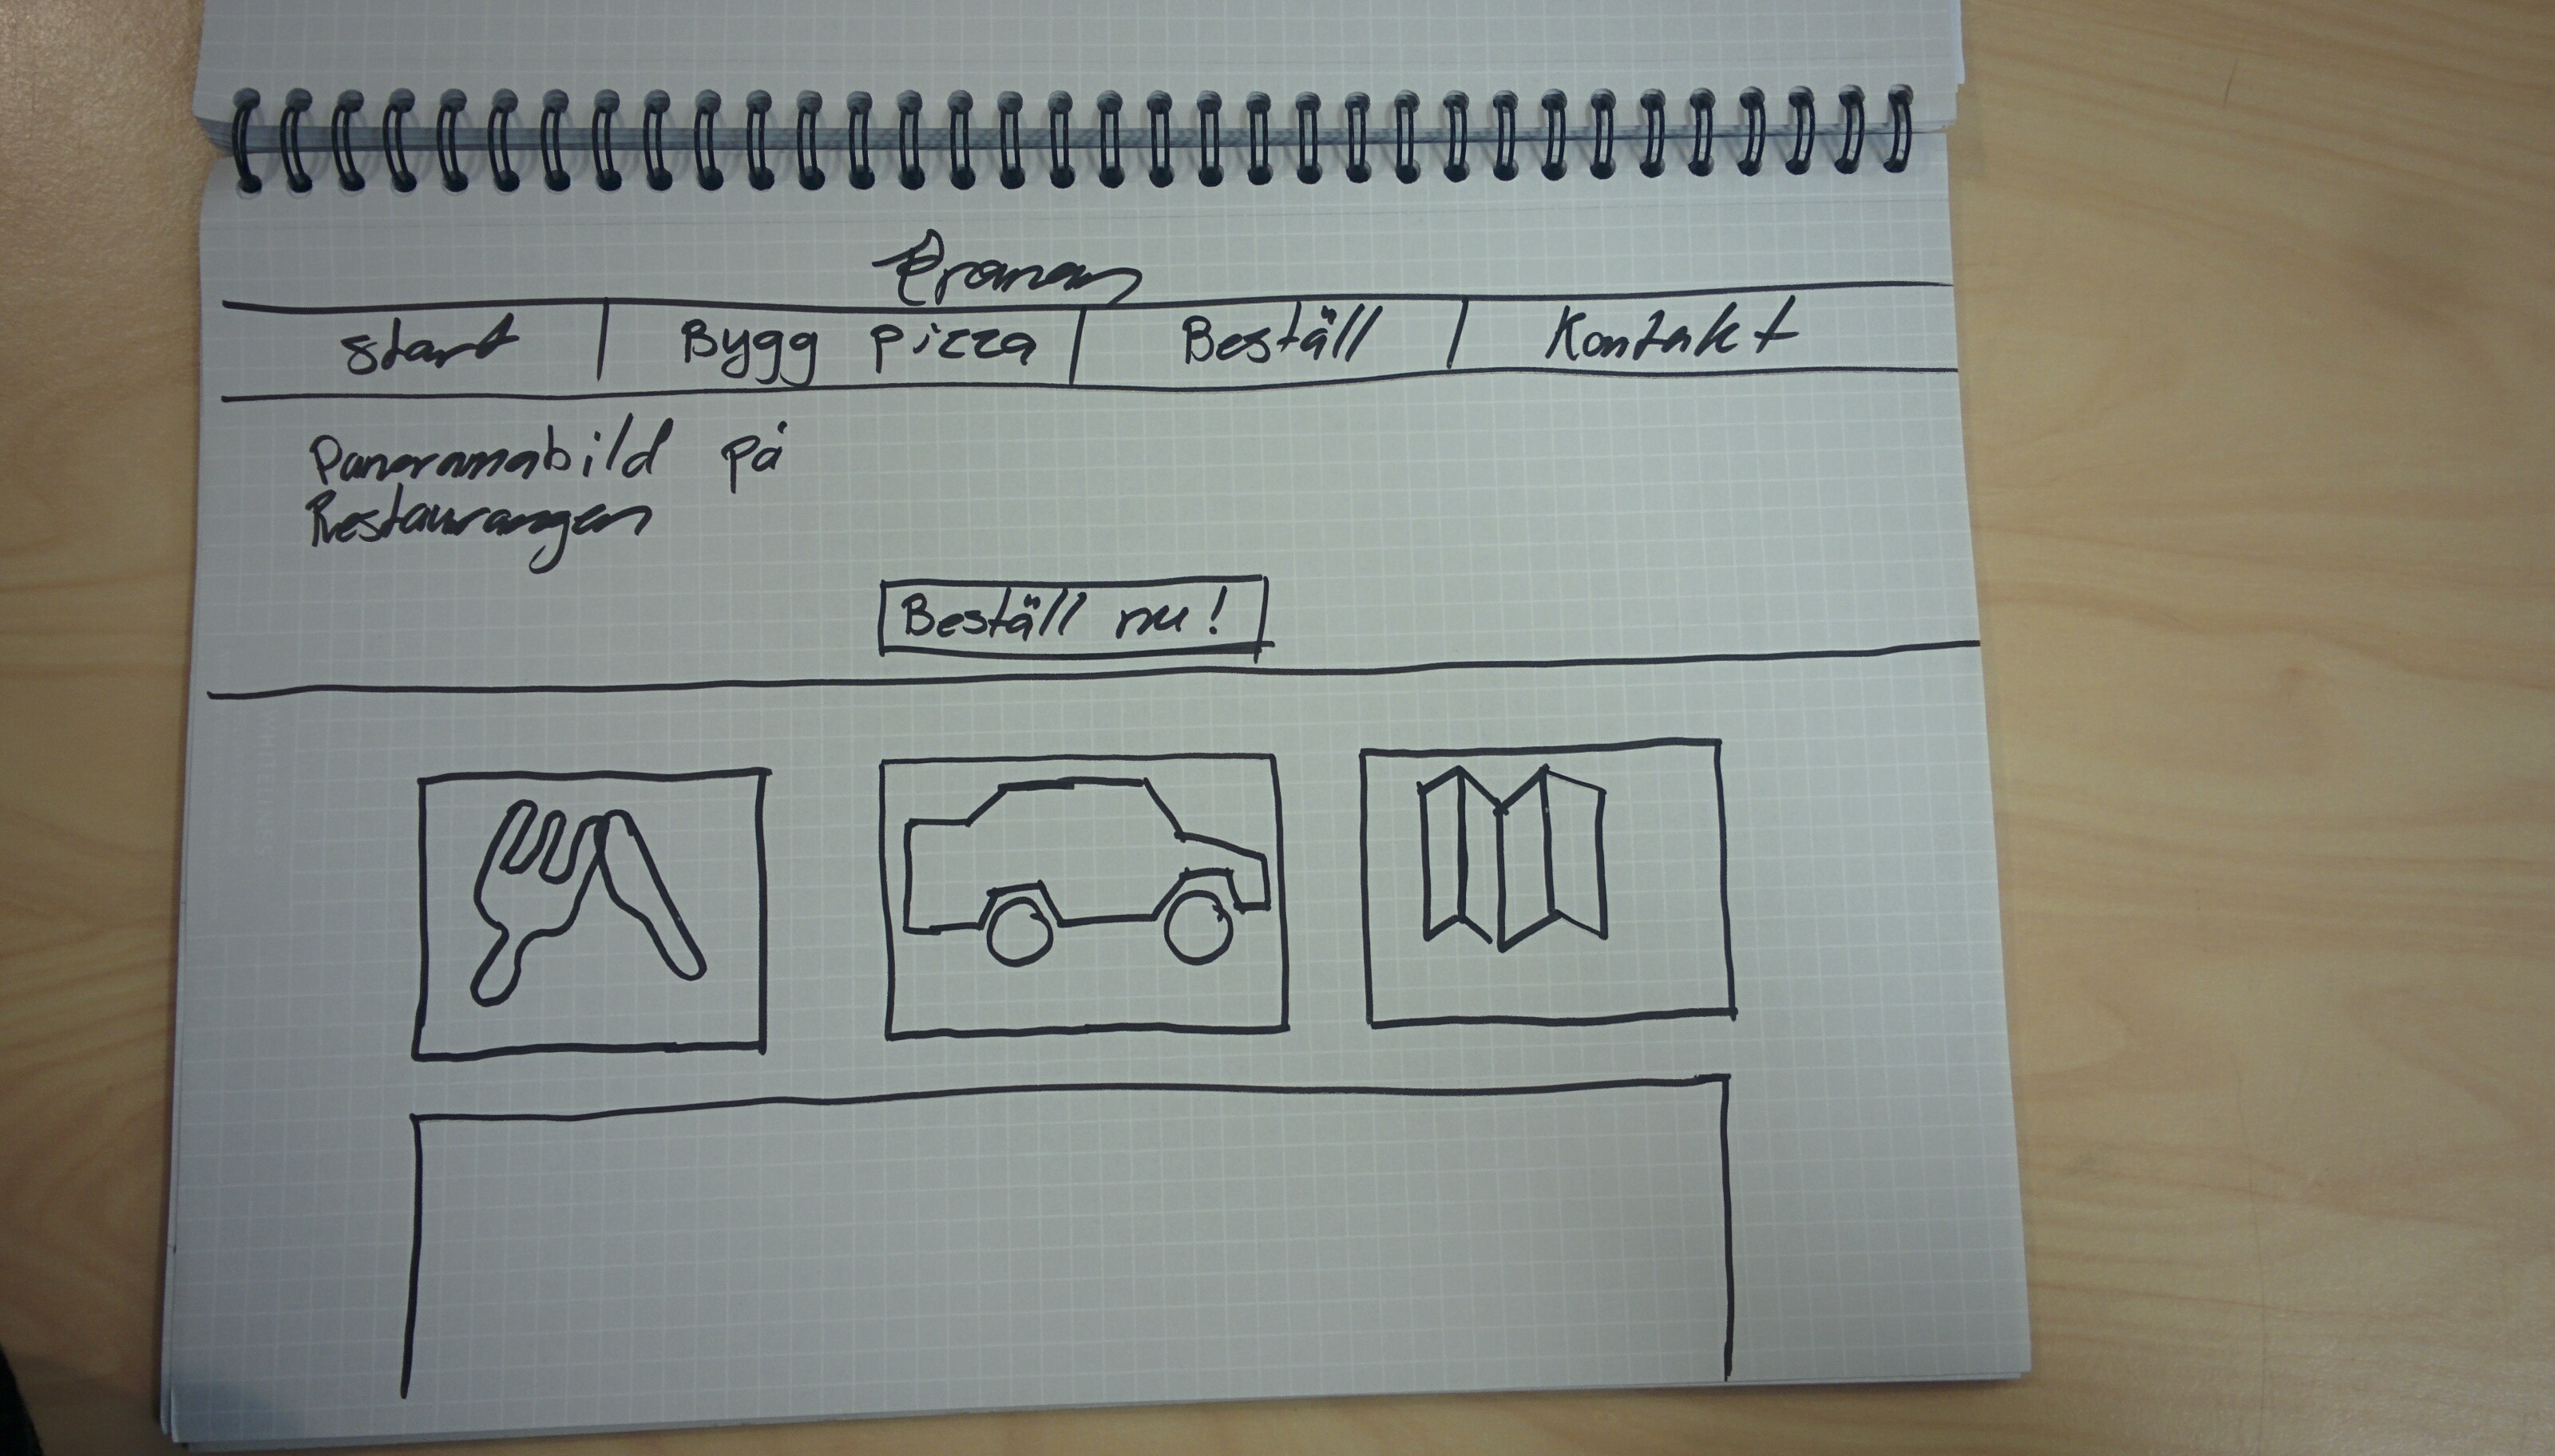 start Bygg pizza Beställ Kontakt
Panoramabild på
Restaurangen
Beställ nu!